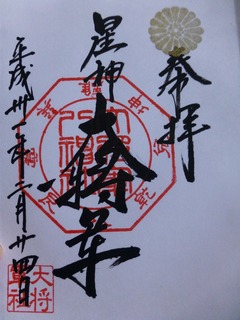 奉拝
星神
大将軍
平成卅一年二月廿四日
大将
軍社